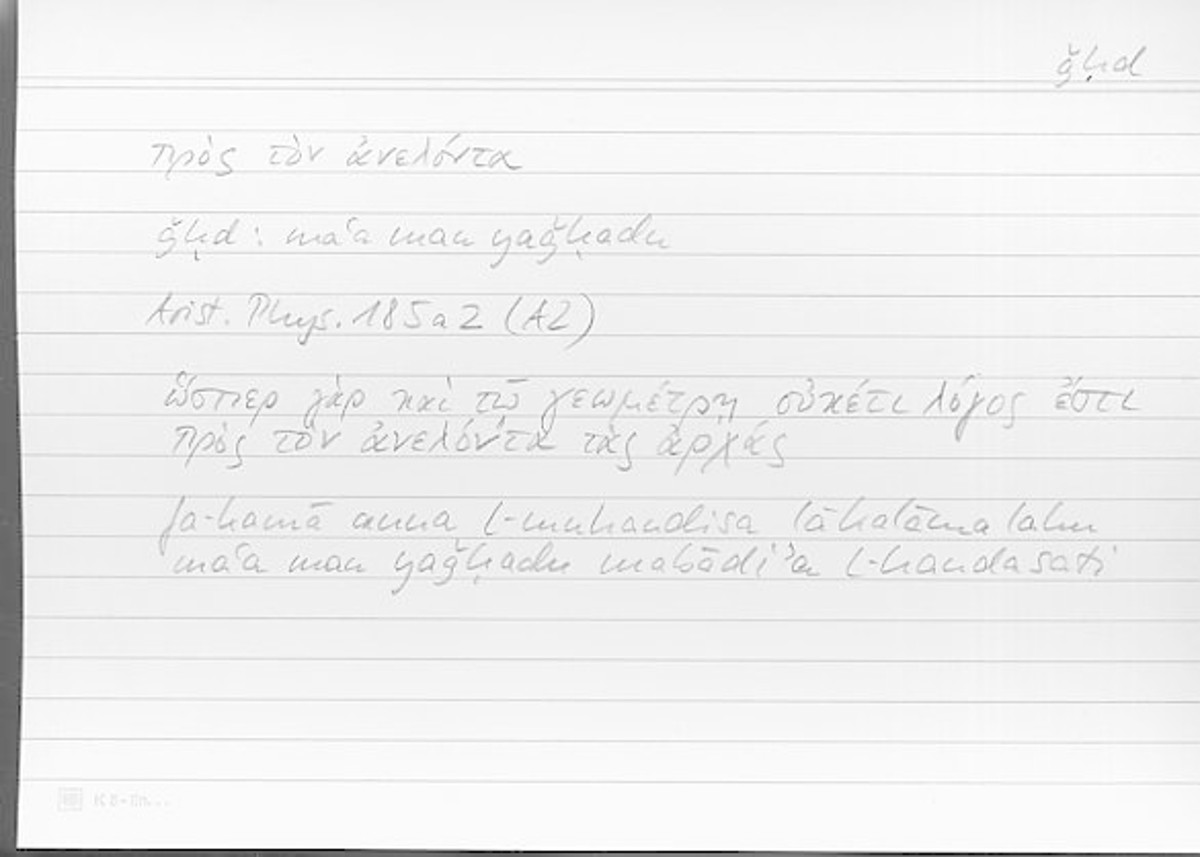 ǧḥd
πρὸς τὸν ἀνελόντα
ǧḥd : maʿa man yaǧḥadu
Arist. Phys. 185a2 (A2)
ὥσπερ γὰρ καὶ τῷ γεωμέτρῃ οὐκέτι λόγος ἔστι
πρὸς τὸν ἀνελόντα τὰς ἀρχάς
fa-kamā anna l-muhandisa lā kalāma lahu
maʿa man yaǧḥadu mabādiʾa l-handasati